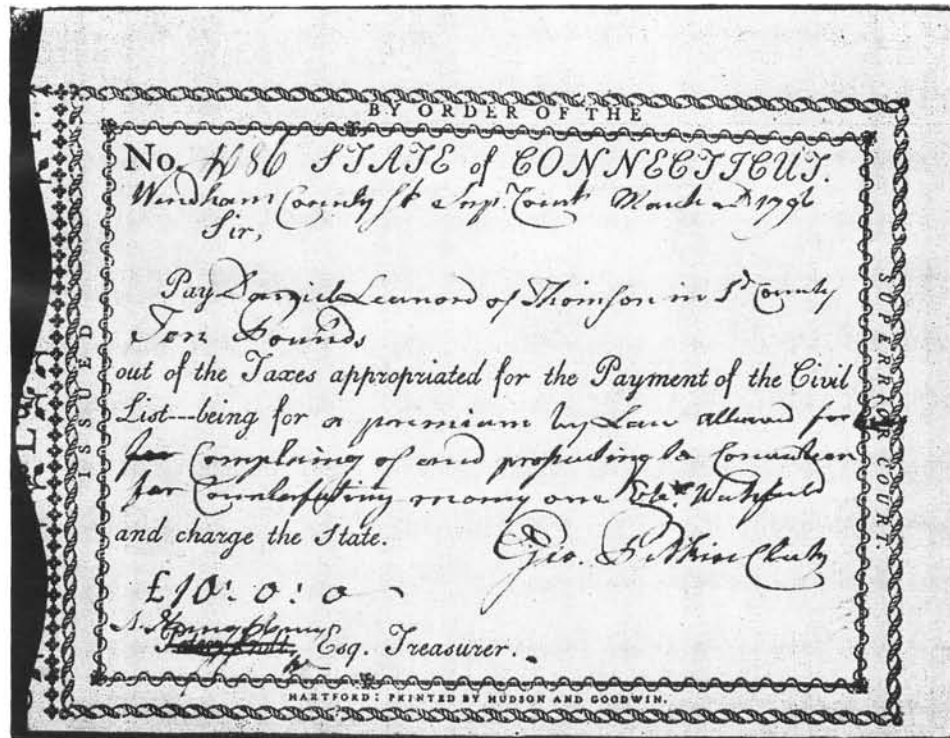 BY ORDER OF THE
No. 4086 STATE of CONNECTICUT.
Windham County Ss Supr. Court March 1796
Sir,
Pay Daniel Leanord of Thomson in Sd County
Ten Pounds
out of the Taxes appropriated for the Payment of the Civil
List---being for a premium by Law allowed for
for Complaing of and prosicuting to Conviction
for Counterfuting mony one
and charge the State.
Geo. Pitkin Clerk
£10: 0: 0
Esq. Treasurer.
ISSUED
SUPERIOR COURT.
HARTFORD: PRINTED BY HUDSON AND GOODWIN.